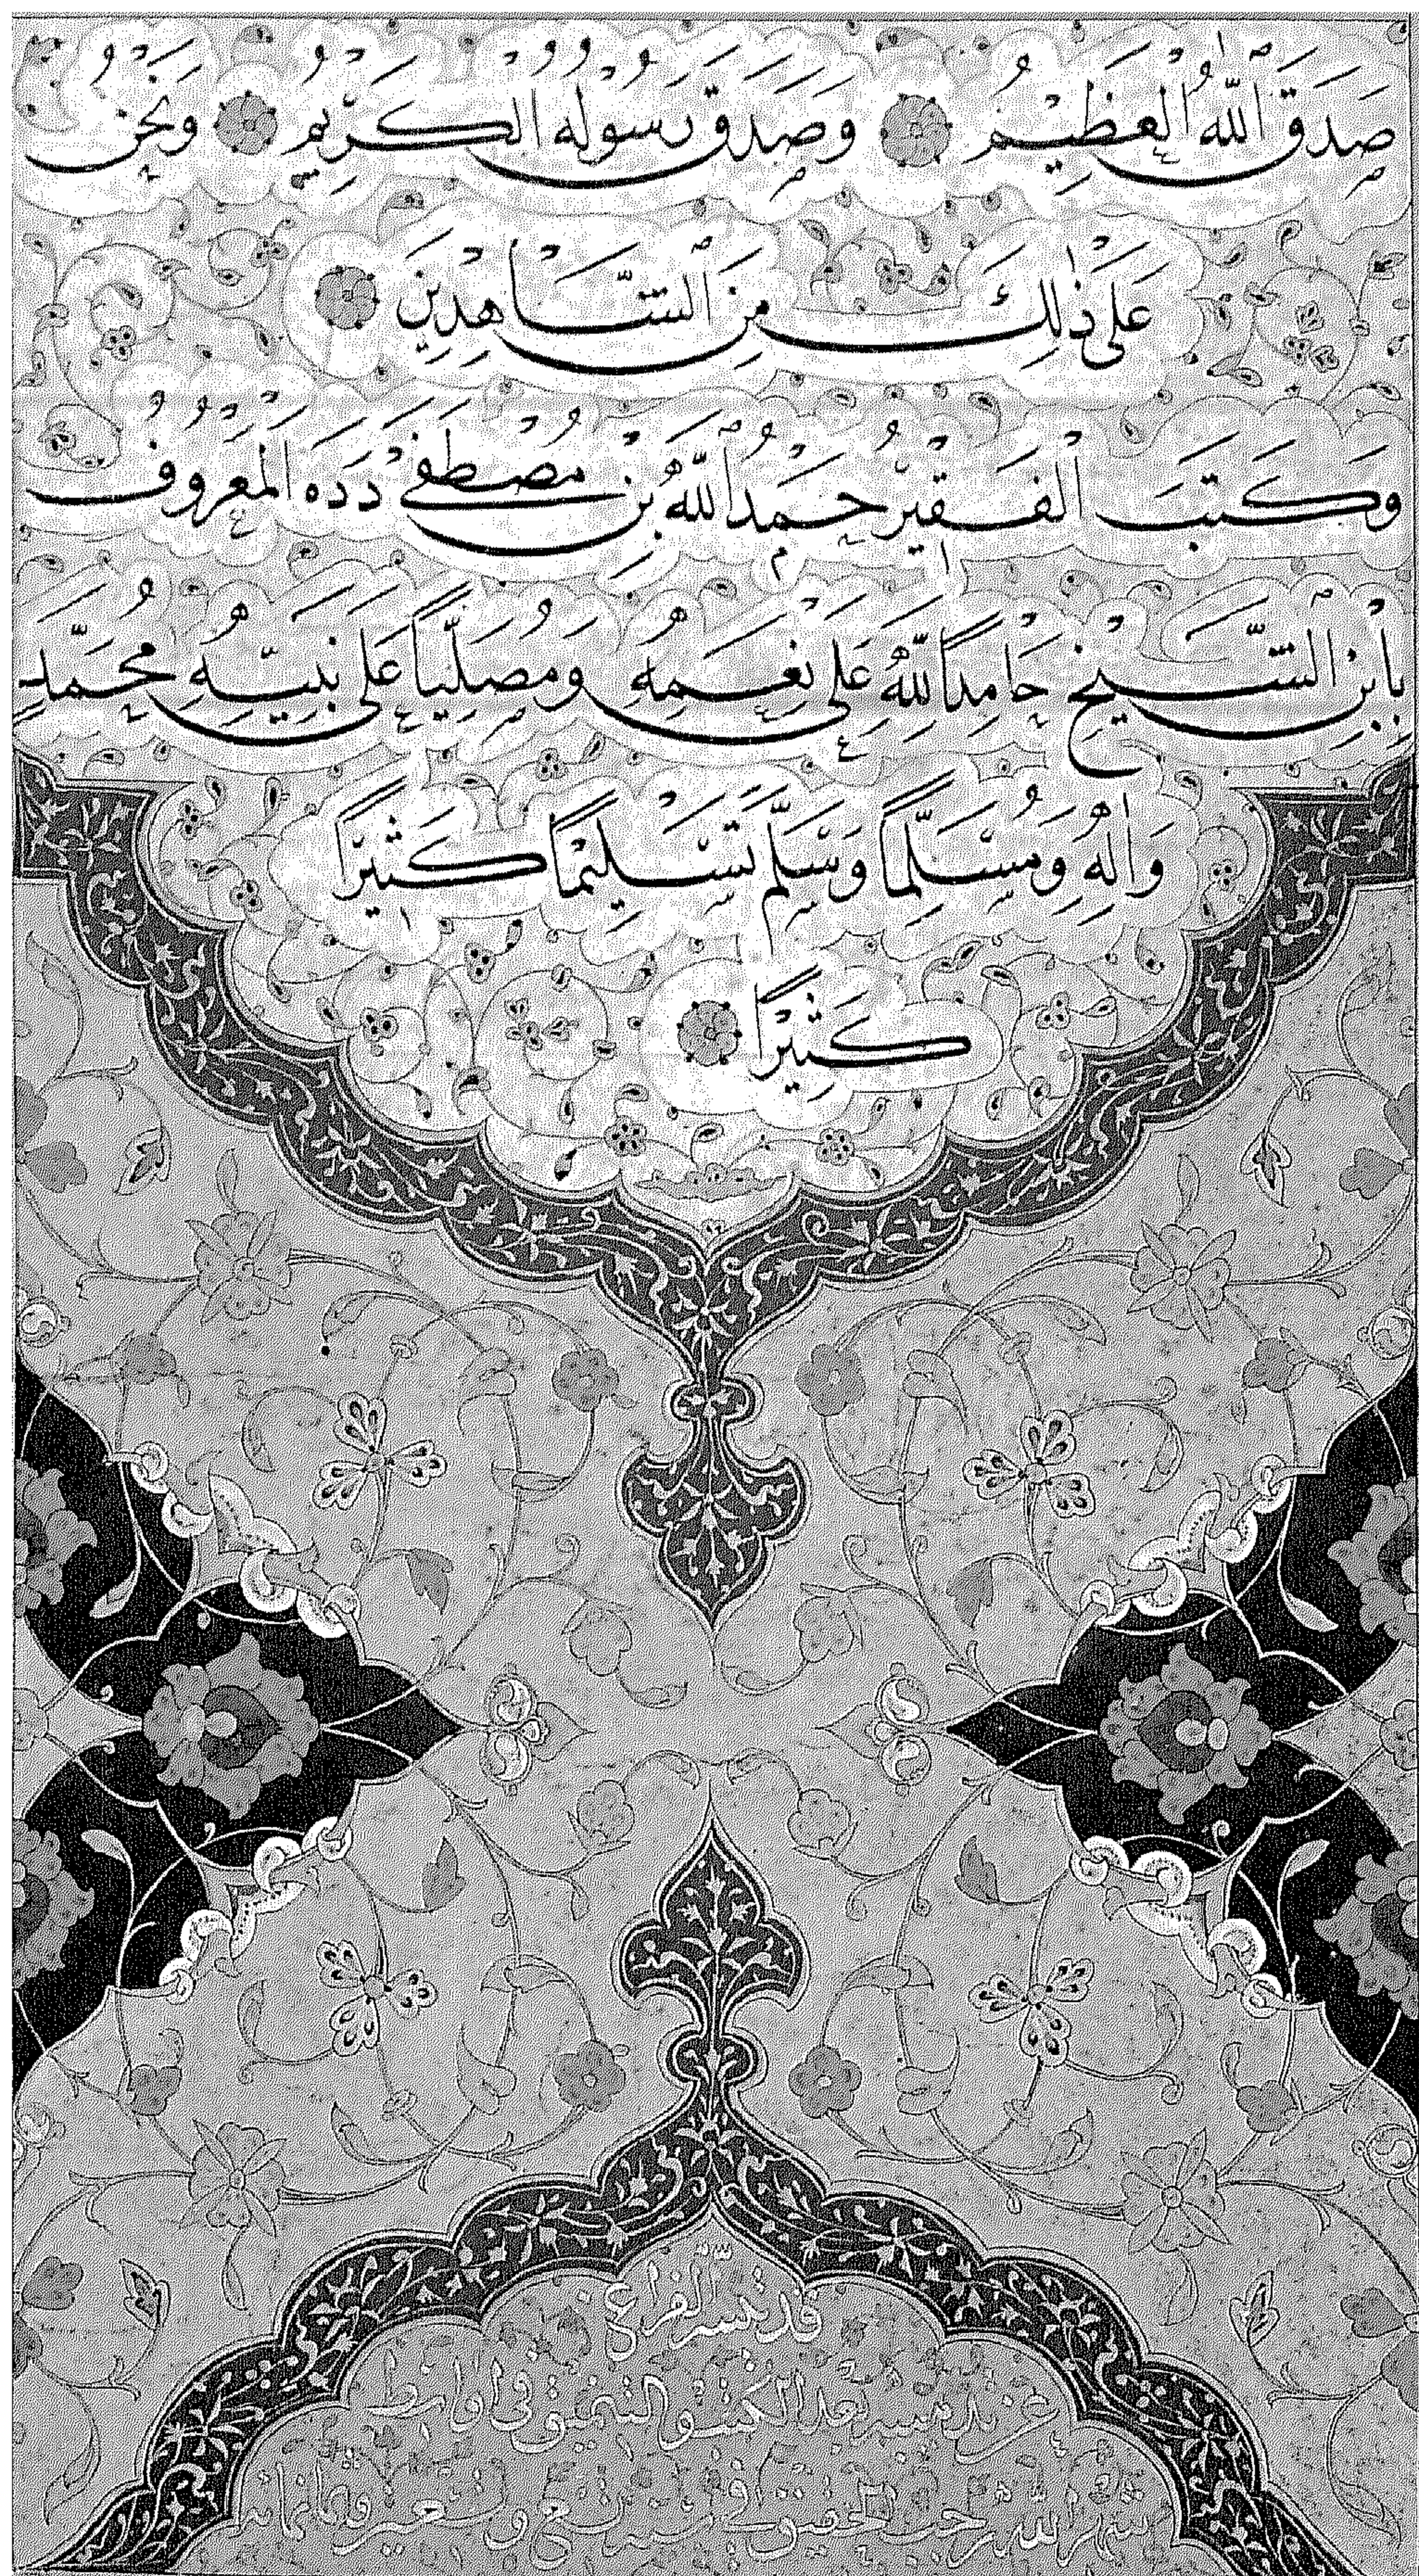 صَدَقَ اللّٰهُ الْعَظِيمُ وَصَدَقَ رَسُولُهُ الْكَرِيمُ وَنَحْنُ
عَلَى ذٰلِكَ مِنَ الشَّاهِدِينَ
وَكَتَبَ الْفَقِيرُ حَمْدُ اللّٰهِ بْنُ مُصْطَفَى دَدَه الْمَعْرُوفُ
بِابْنِ الشَّيْخِ حَامِدًا لِلّٰهِ عَلَى نِعَمِهِ وَمُصَلِّيًا عَلَى نَبِيِّهِ مُحَمَّدٍ
وَاٰلِهِ وَمُسَلِّمًا وَسَلَّمَ تَسْلِيمًا كَثِيرًا
كَثِيرًا
قد تيسر الفراغ
بعد
شهر الله رجب